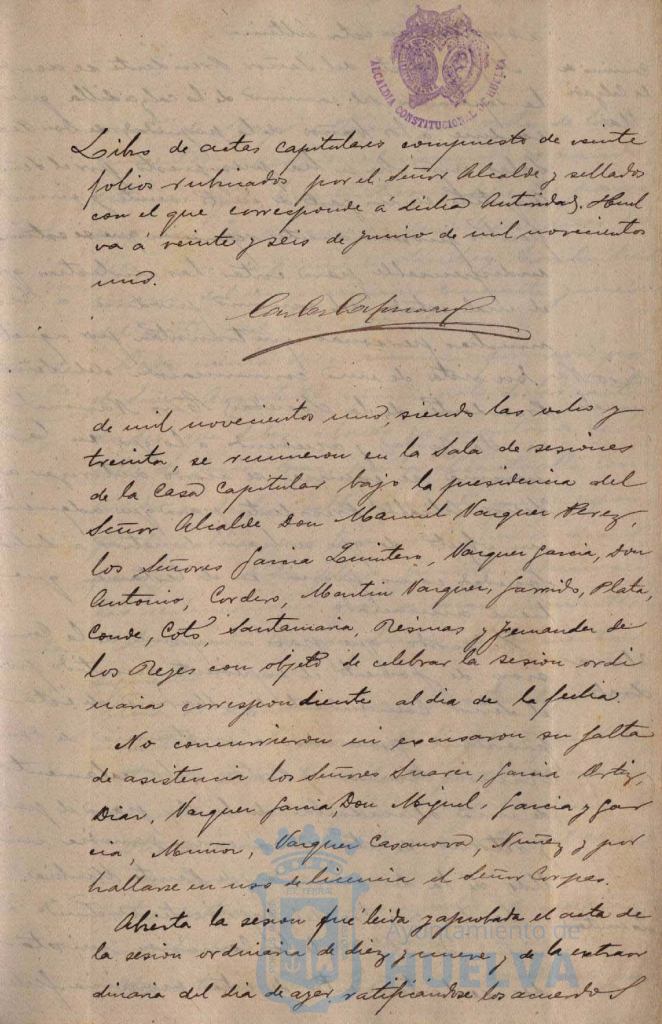 ALCALDIA CONSTITUCIONAL DE HUELVA
Libro de actas capitulares compuesto de veinte
folios rubricados por el Señor Alcalde y sellados
con el que corresponde á dicha Autoridad. Huel
va á veinte y seis de junio de mil novecientos
uno.
de mil novecientos uno, siendo las ocho y
treinta, se reunieron en la Sala de sesiones
de la Casa Capitular bajo la presidencia del
Señor Alcalde Don Manuel Vazquez Perez,
los Señores Garcia Quintero, Vazquez Garcia, Don
Antonio, Cordero, Martin Vazquez, Garrido, Plata,
Conde, Cotó, Santamaria, Resinas y Fernandez de
los Reyes con objeto de celebrar la sesion ordi
naria correspondiente al dia de la fecha.
No concurrieron ni excusaron su falta
de asistencia los Señores Suarez, Garcia Ortiz,
Diaz, Vazquez Garcia, Don Miguel, Garcia y Gar
cia, Muñoz, Vazquez Casanova, Nuñez y por
hallarse en uso de licencia el Señor Corpas.
Abierta la sesion fué leida y aprobada el acta de
la sesion ordinaria de diez y nueve y de la extraor
dinaria del dia de ayer ratificandose los acuerdos
Ayuntamiento de
HUELVA